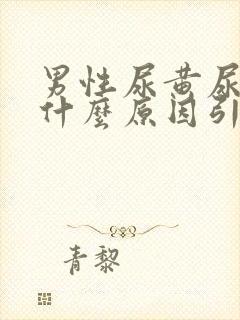 男性尿黄尿
什麼原因引
青黎